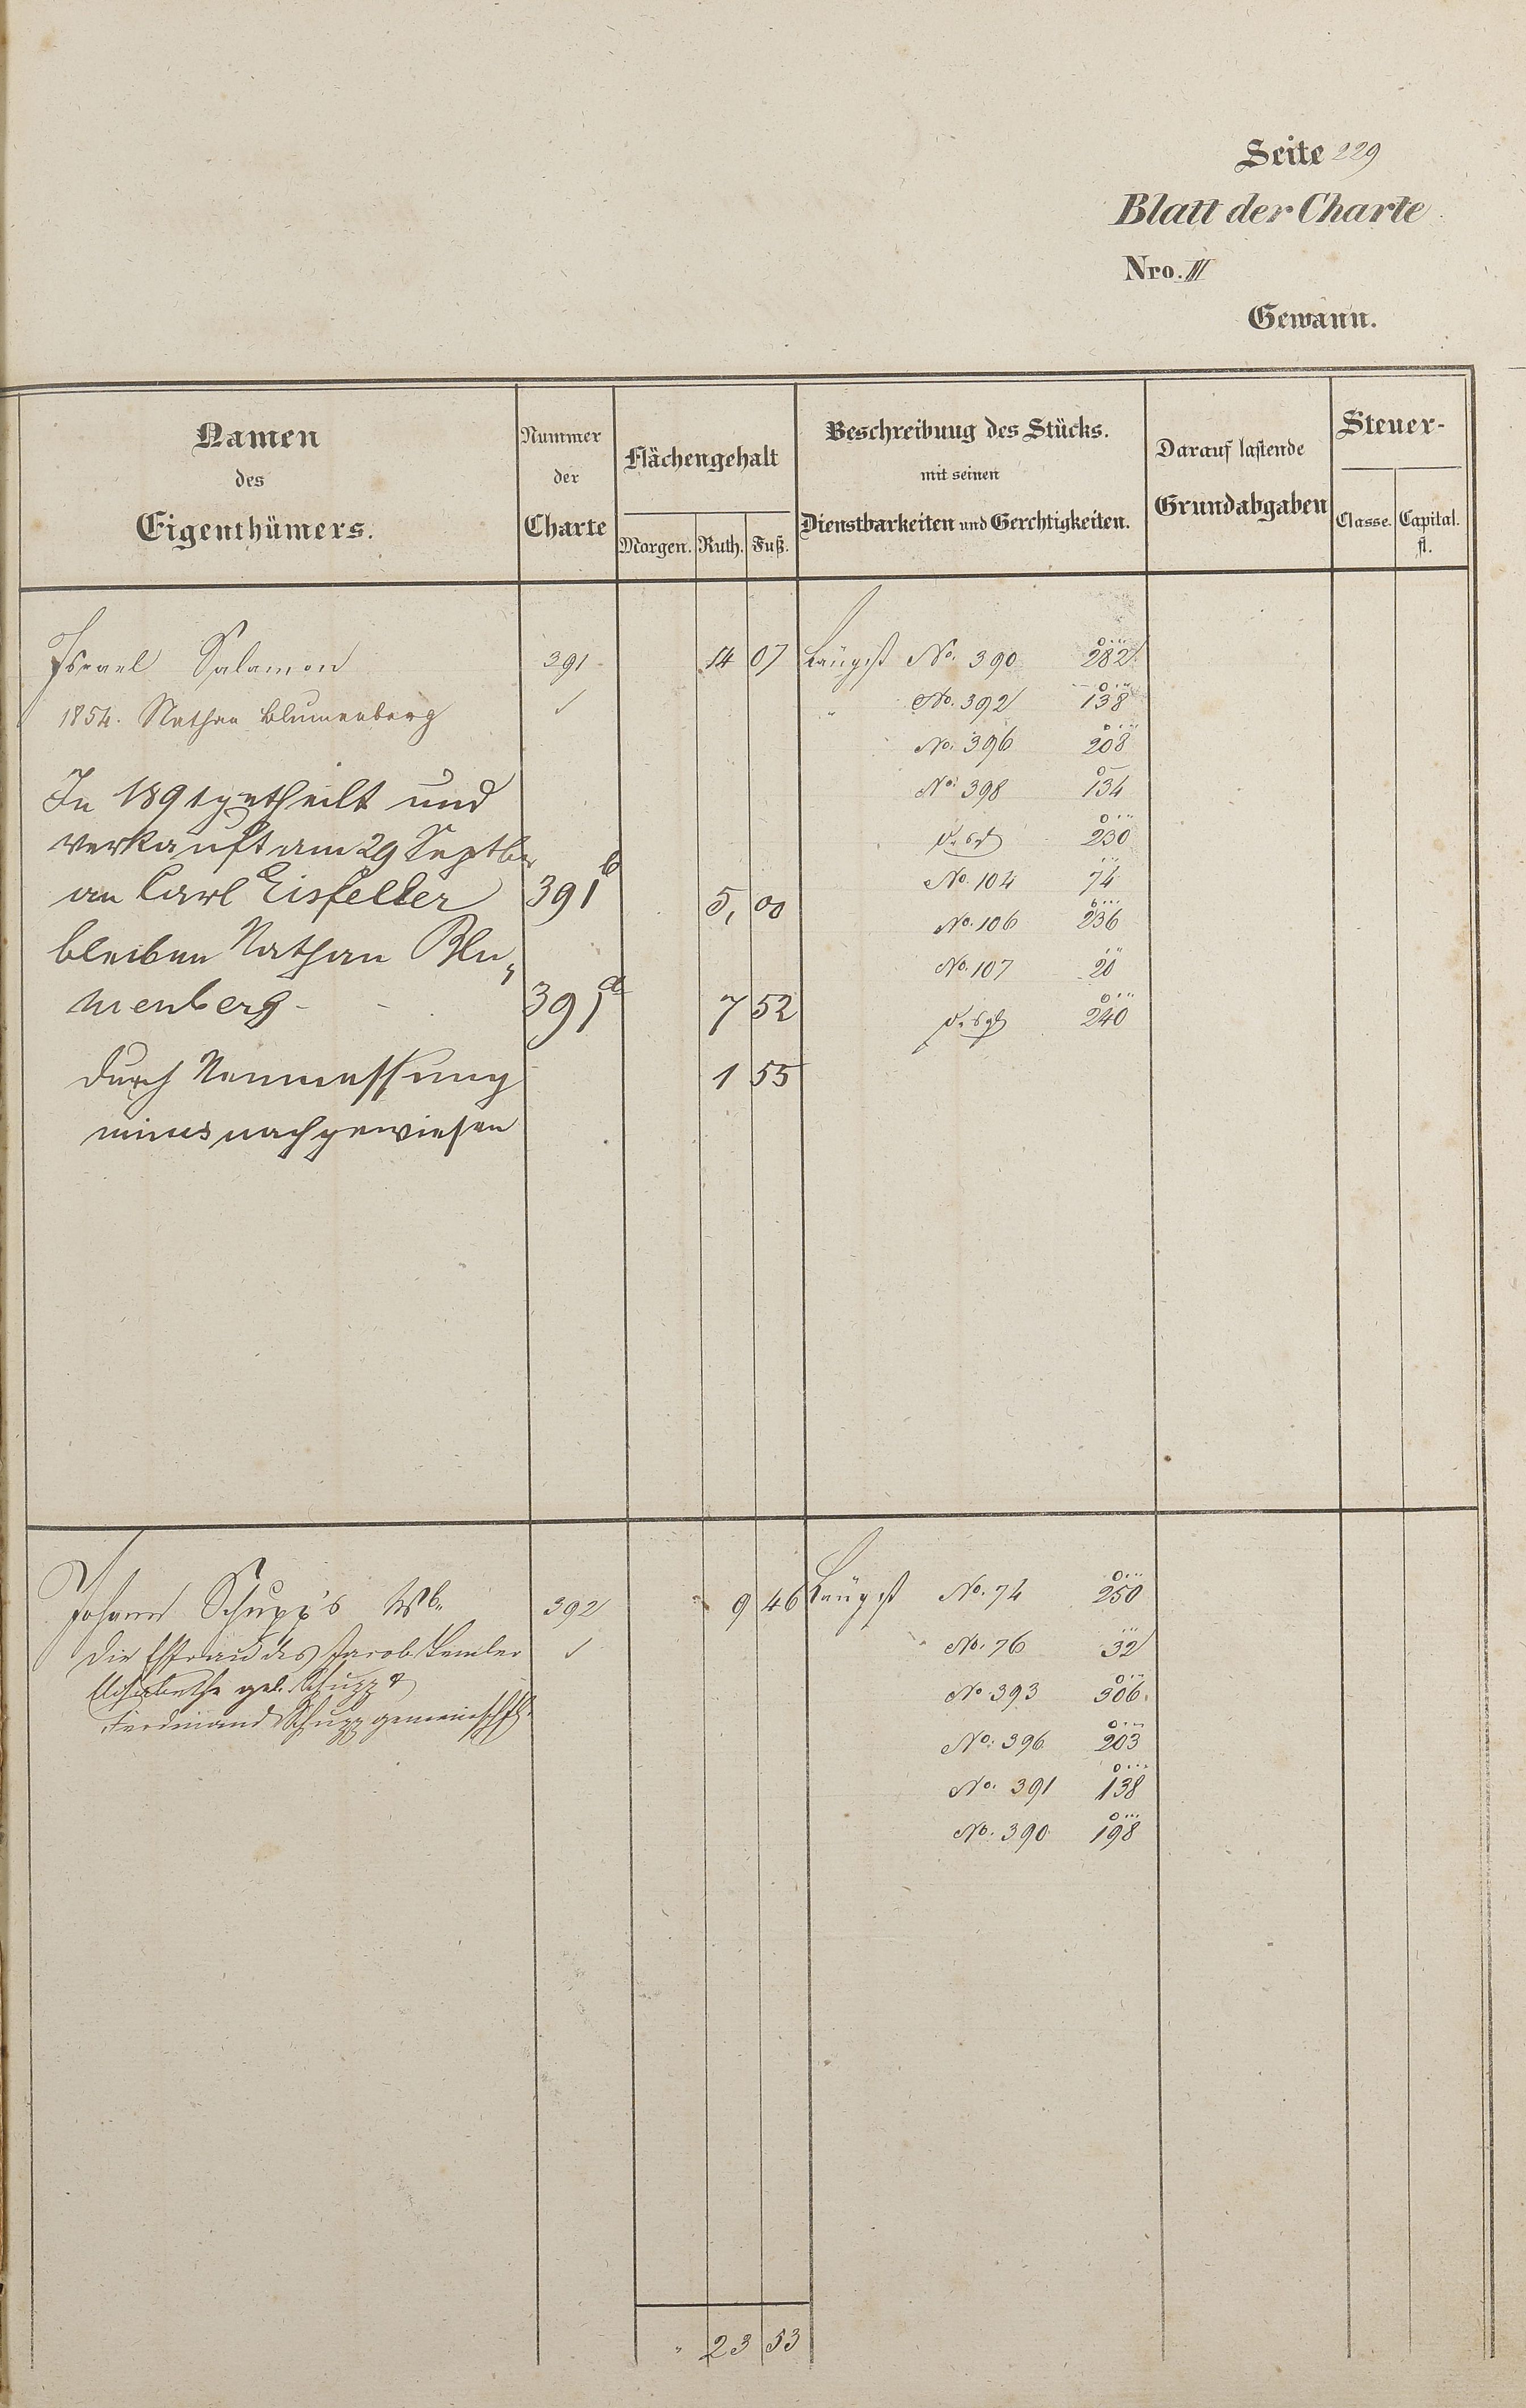 Seite 229
Blatt der Charte
Nro. III
Gewann.
Namen des Eigenthümers.
Nummer der Charte
Flächengehalt
Morgen. Ruth. Fuß.
Beschreibung des Stücks. mit seinen Dienstbarkeiten und Gerchtigkeiten.
Darauf lastende Grundabgaben
Steuer-
Classe. Capital. fl.
Israel Salamon 391 14 07 Längst No. 390 282
1854. Nathan Blumenberg No. 392 138
No. 396 208
In 1891 getheilt und No. 398 134
verkauft am 29 Septber 230
an Carl Eisfelder 391b 5, 00 No. 104 74
No. 106 236
bleiben Nathan Blu„ No. 107 20
menberg 391a 7 52 240
durch Neumessung 1 55
minus nachgewiesen
Johann Schupp's Wb. 392 9 46 Längst No. 74 250
Die Ehfrau des Jacob No. 76 32
Elisabetha geb. Schupp & No. 393 306
Ferdinand Schupp gemeinschftl. No. 396 203
No. 391 138
No. 390 198
23 53